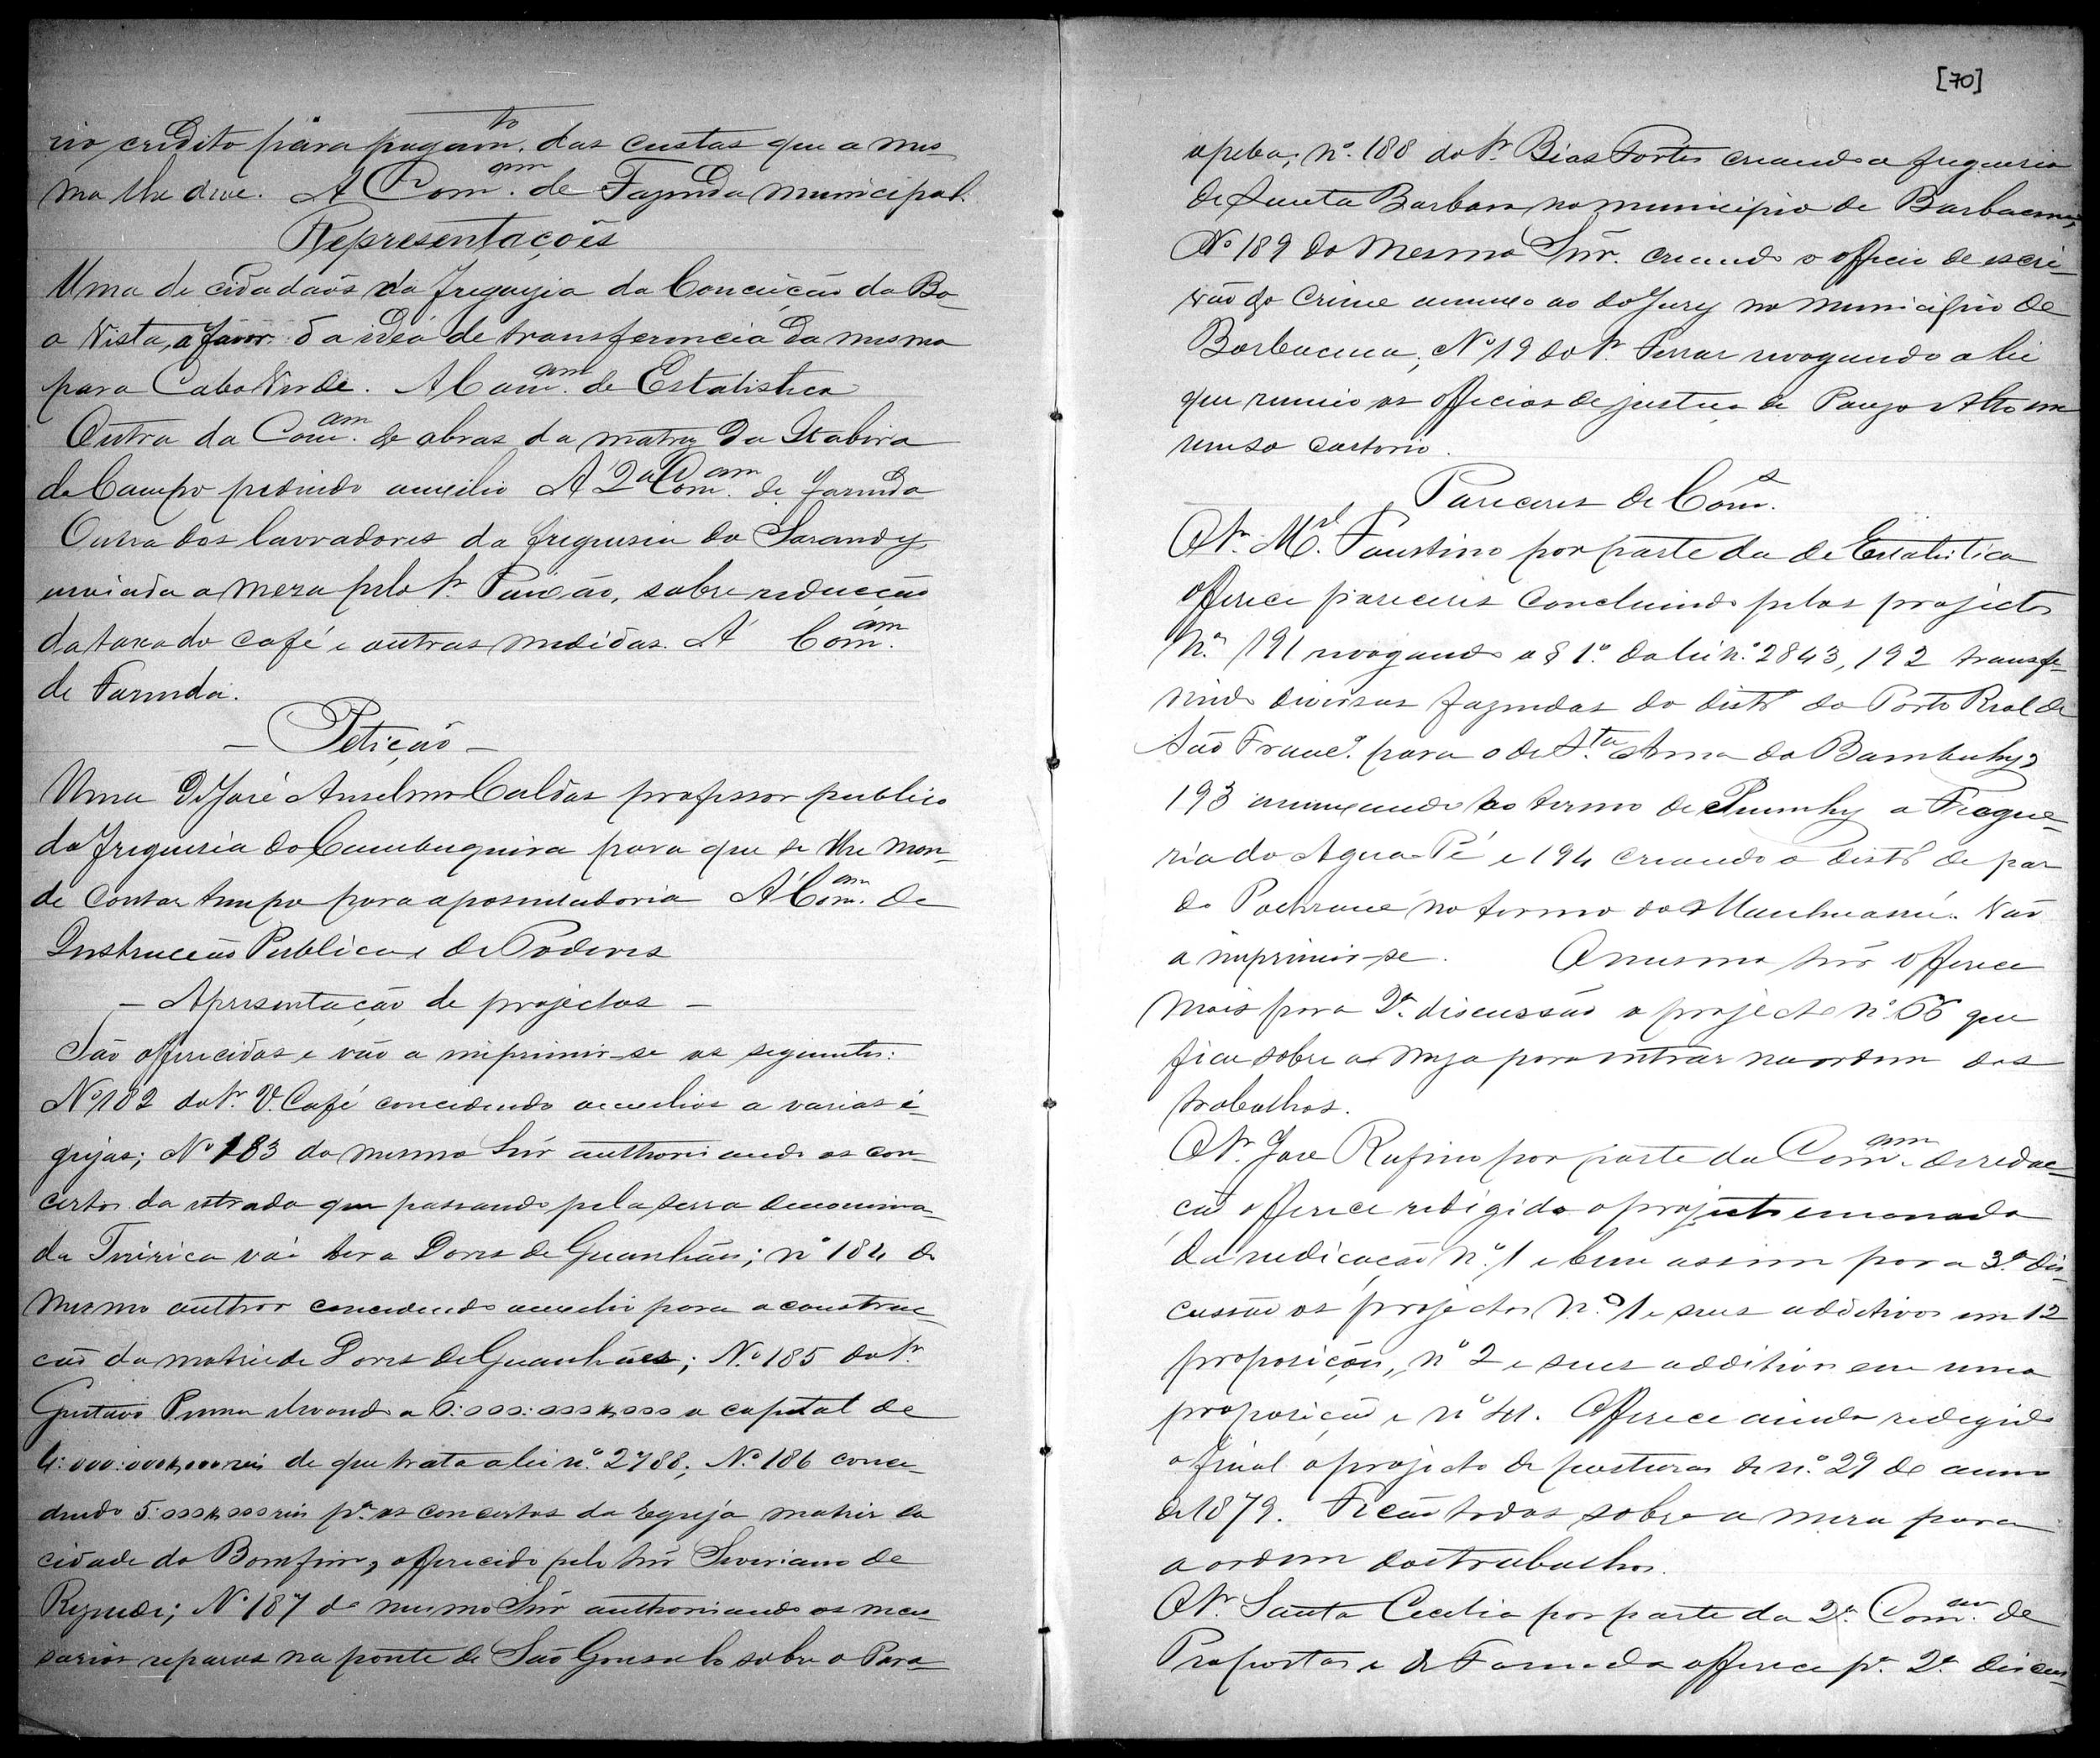 rio credito para pagam.to das custas que a mes-
ma lhe deve. A Com.am de Fazenda municipal.
Representações
Uma de cidadaõs da freguezia da Conceição da Bo-
a Vista, a favor da idéa de transferencia da mesma
para Cabo Verde. A Com.am de Estatistica
Outra da Com.am de obras da matriz da Itabira
do Campo pedindo auxilio A 2a Com.am de fazenda
Outra dos lavradores da freguesia do Sarandy
enviada a meza pelo Sr. Paixão, sobre reducção
da taxa do café e outras medidas. A' Com.am
de Fazenda.
— Petição —
Uma de José Anselmo Caldas professor publico
da freguesia do Cambuquira para que se lhe man-
de contar tempo para aposentadoria A' Com.am de
Instrucção Publica e de Poderes
— Apresentação de projectos —
São offerecidos e vão a imprimir-se os seguintes:
Nº 182 do Sr. V. Café concedendo auxilios a varias i-
grejas; Nº 183 do mesmo Snr authorisando os con-
certos da estrada que passando pela serra denomina-
da Tiririca vai ter a Dores de Guanhães; nº 184 do
mesmo author concedendo auxilio para a construc-
ção da matriz de Dores de Guanhães; N.º 185 do Sr.
Gustavo Penna elevando a 6:000:000$000 o capital de
4:000:000$000 reis de que trata a lei n.º 2788; N.º 186 conce-
dendo 5:000$000 reis p.a os concertos da Egreja matriz da
cidade do Bomfim, offerecido pelo Snr Severiano de
Rezende; Nº 187 do mesmo Snr authorisando os neces-
sarios reparos na ponte de São Gonsalo sobre o Para-
[70]
opeba; nº. 188 do Sr. Bias Fortes creando a freguesia
de Santa Barbara no municipio de Barbacena;
Nº 189 do mesmo Snr. creando o officio de escri-
vão do crime annexo ao do Jury no municipio de
Barbacena; Nº 19 do Sr. Ferraz revogando a lei
que reunio os officios de justiça de Pouzo Alto em
um so cartorio.
Pareceres de Com.s
O Sr. M.el Faustino por parte da de Estatistica
offerece pareceres concluindo pelos projectos
N.os 191 revogando o § 1.º da lei n.º 2843, 192 transfe-
rindo diversas fazendas do distº do Porto Real de
São Franc.º para o de S.ta Anna do Bambuhy,
193 annexando ao termo de Piumhy a Fregue-
ria do Agua-Pé e 194 creando o distº de paz
do Pochrane no termo do Manhuassú. Vão
a imprimir-se. O mesmo Snr offerece
mais para 2ª. discussão o projecto nº 66 que
fica sobre a meza para entrar na ordem dos
trabalhos.
O Sr. Jose Rufino por parte da Com.am de redac-
ção offerece redigido o projecto emanado
da indicação n.º 1 e bem assim para 3.ª dis-
cussão os projectos N.º 1 e seus additivos em 12
proposições, nº 2 e seus additivos em uma
proposição e nº 41. Offerece ainda redigido
o final o projecto de posturas de n.º 29 do anno
de 1879. Ficão todos sobre a meza para
a ordem dos trabalhos.
O Sr. Santa Cecilia por parte da 2ª. Com.am de
Propostas e de Fazenda offerece pª. 2ª. discus-